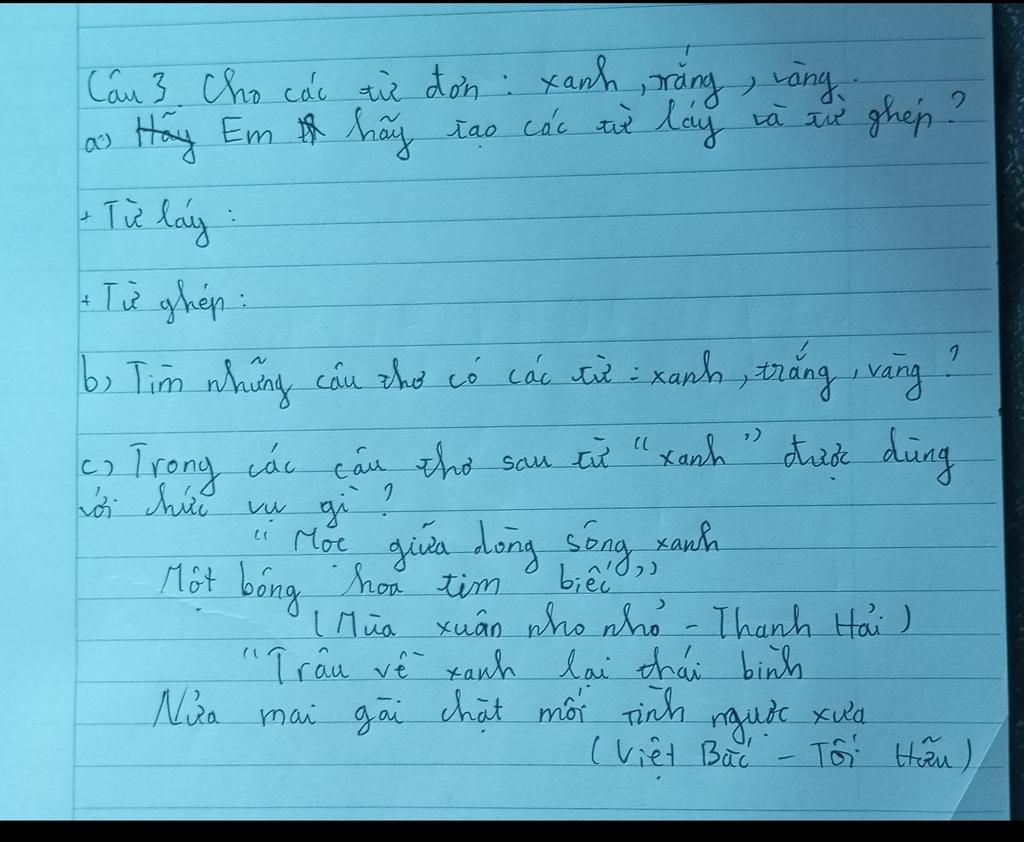 Câu 3. Cho các từ đơn : xanh, trắng, vàng.
a) Hãy Em hãy tạo các từ láy và từ ghép ?
+ Từ láy :
+ Từ ghép :
b) Tìm những câu thơ có các từ : xanh, trắng, vàng ?
c) Trong các câu thơ sau từ "xanh" được dùng
với chức vụ gì ?
"Mọc giữa dòng sông xanh
Một bông hoa tím biếc"
(Mùa xuân nho nhỏ - Thanh Hải)
"Trâu về xanh lại thái bình
Nửa mai gài chặt mối tình ngược xưa
(Việt Bắc - Tố Hữu)